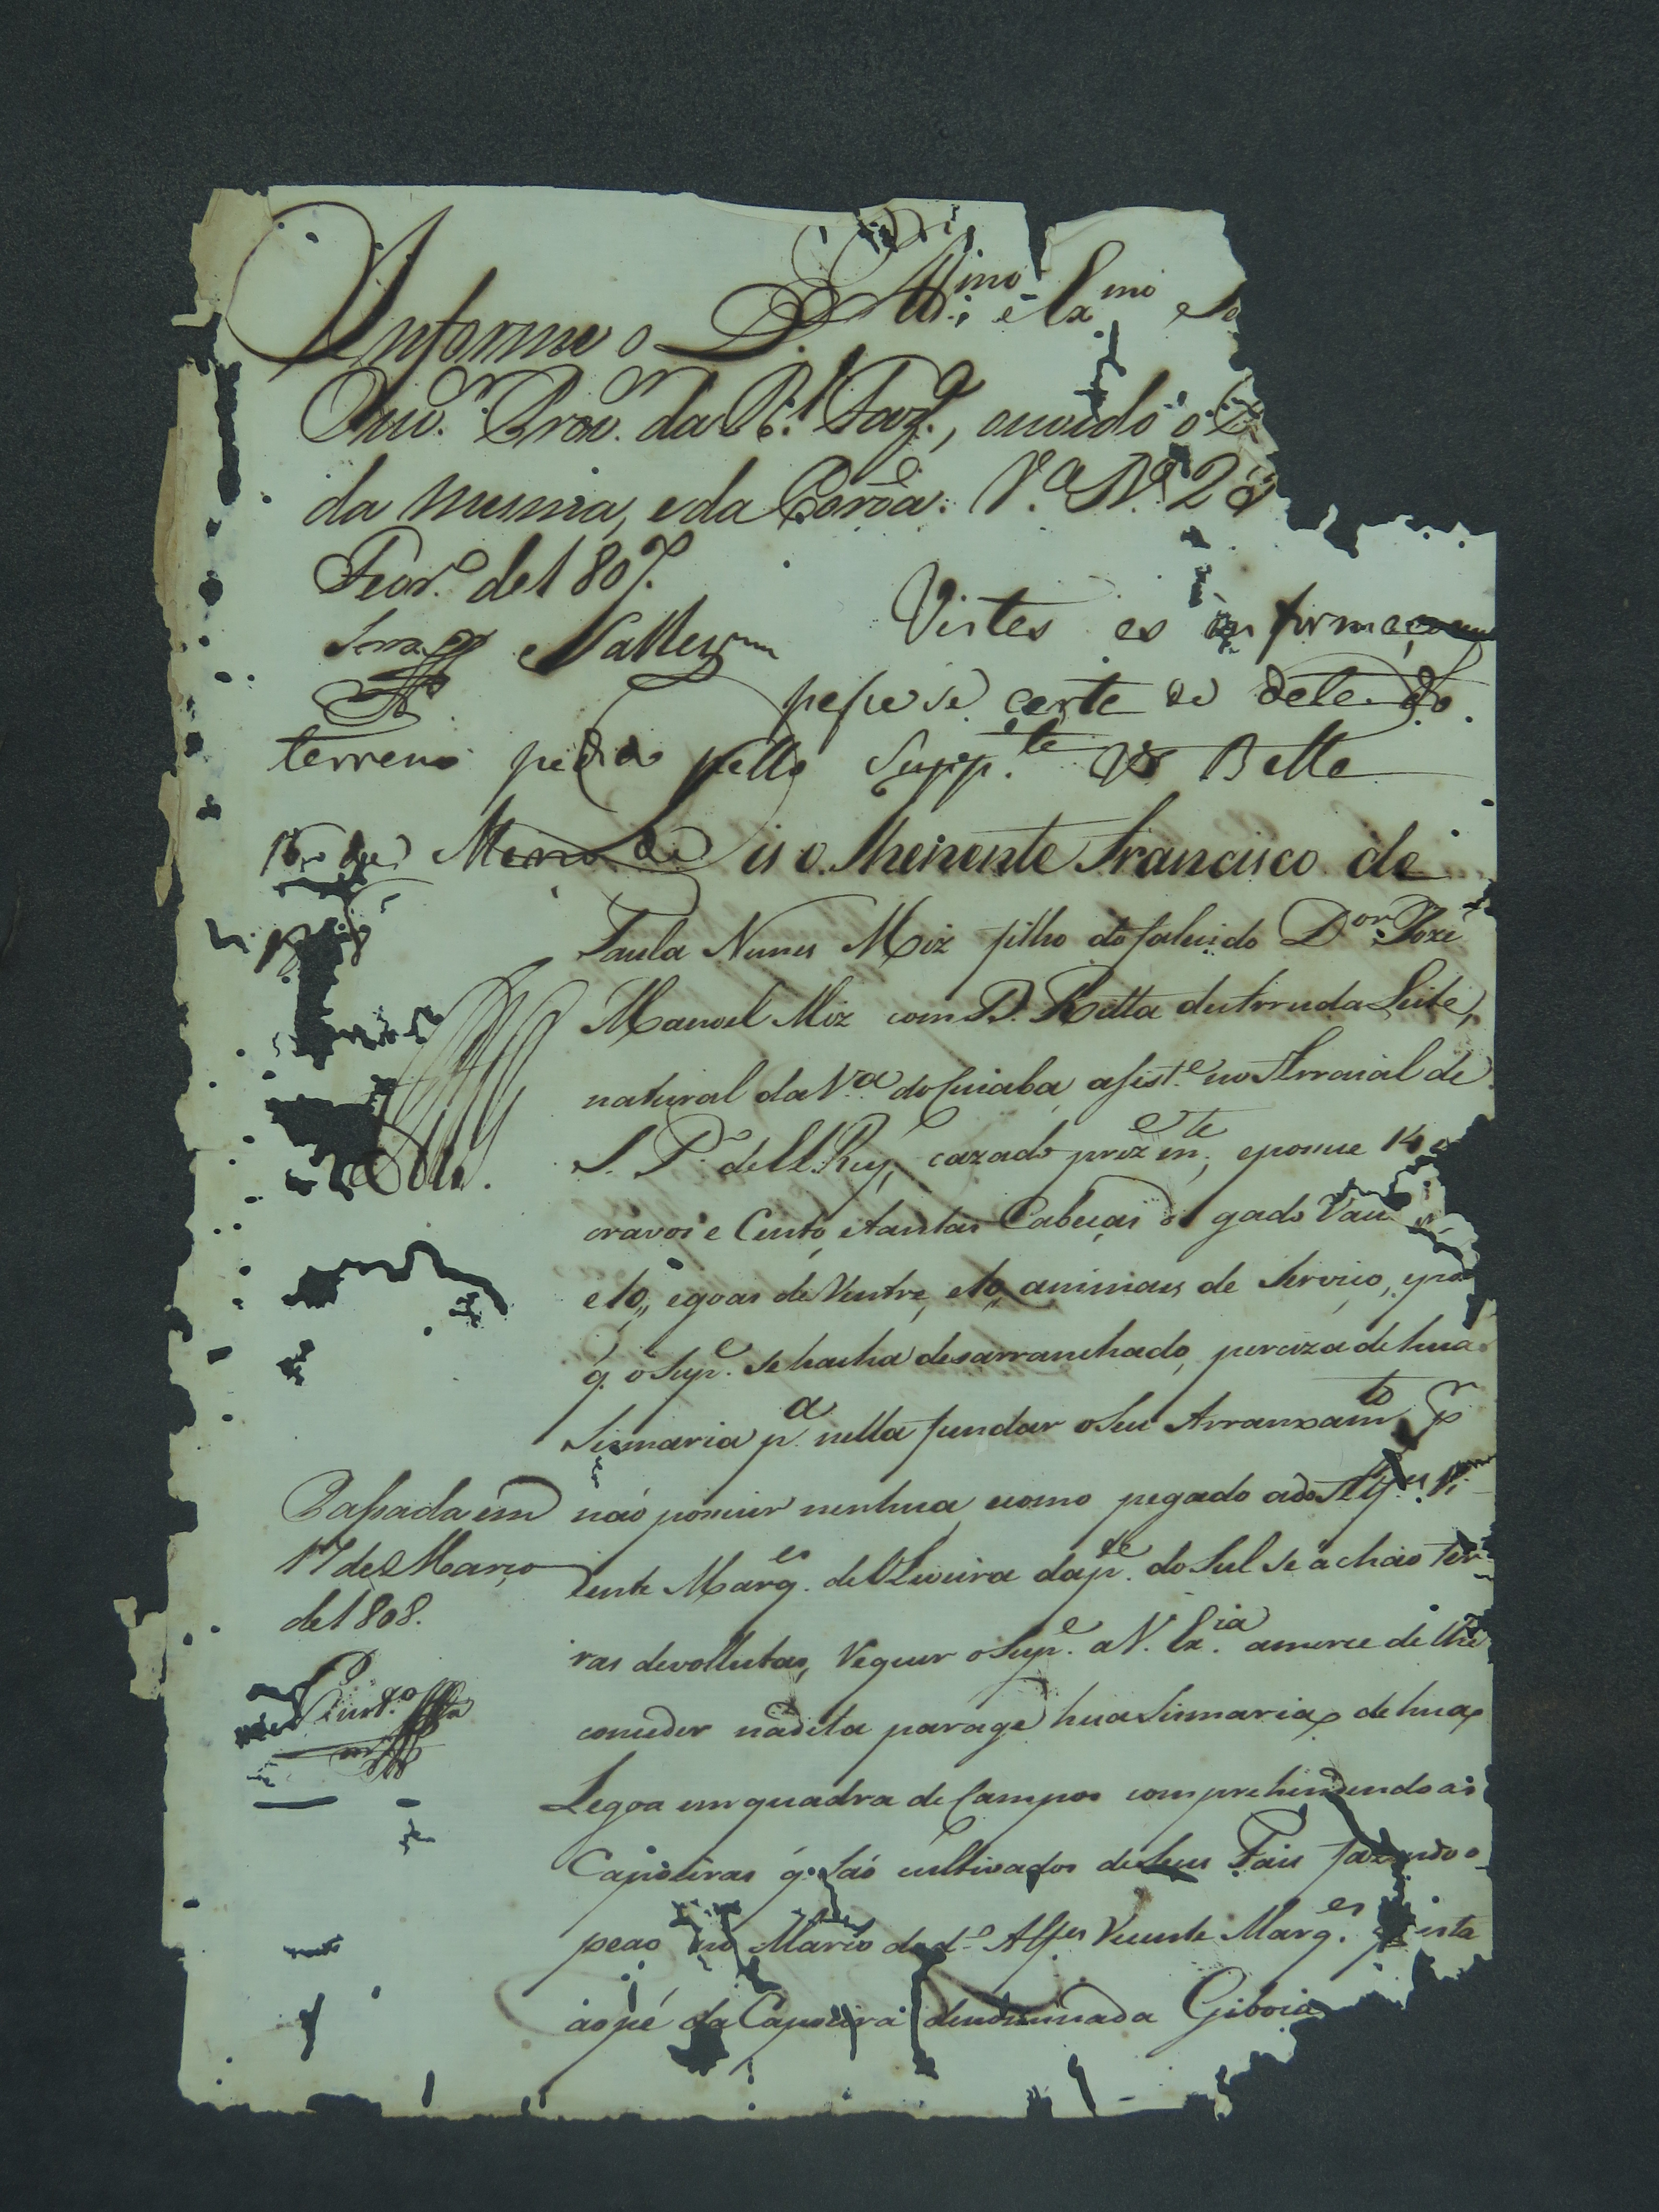 Illmo. e Exmo. Sn
Informe o D.
Ouvor. Provor. da Rl. Fazda., ouvido o
da mesma, e da Corôa. Va. Ba. 2
Fevro. de 1807.
Vistes es informaçoens
pese se carte de dete do
terreno pedido pello Suppte. Va Bella
16 de Março de
1808
Diz o Theinente Francisco de
Paula Nunes Miz filho do falecido Dor. Joze
Manoel Miz com D. Ritta de Arruda Leite,
natural da Va. do Cuiabá, asiste. no Arraial de
S. Po. del Rey, cazado prezente., e posue 14 es
cravos e Cento, e tantas Cabeças de gado Vacu
e 10,, egoas de Ventre, e 10,, animaes de Serviço, e por
q. o Supe. se hacha desarranchado, perciza de hua
Sismaria pa. nella fundar o Seu Arranxamto. pr
não posuir nenhua, e como pegado ao do Alfes. Vi
cente Marqes. de Oliveira da pte. do Sul se achão ter
ras devollutas, Requer o Supe. a V. Exia. a merce de lhe
conceder na dita parage hua Sismaria de hua
Legoa em quadra de Campos comprehendendo as
Capoeiras q. são cultivados de seus Pais fazendo o
peão no Marco do do. Alfes Vicente Marqes. q. esta
ao pé da Capoeira denominada Giboia
Pasada em
17 de Março
de 1808.